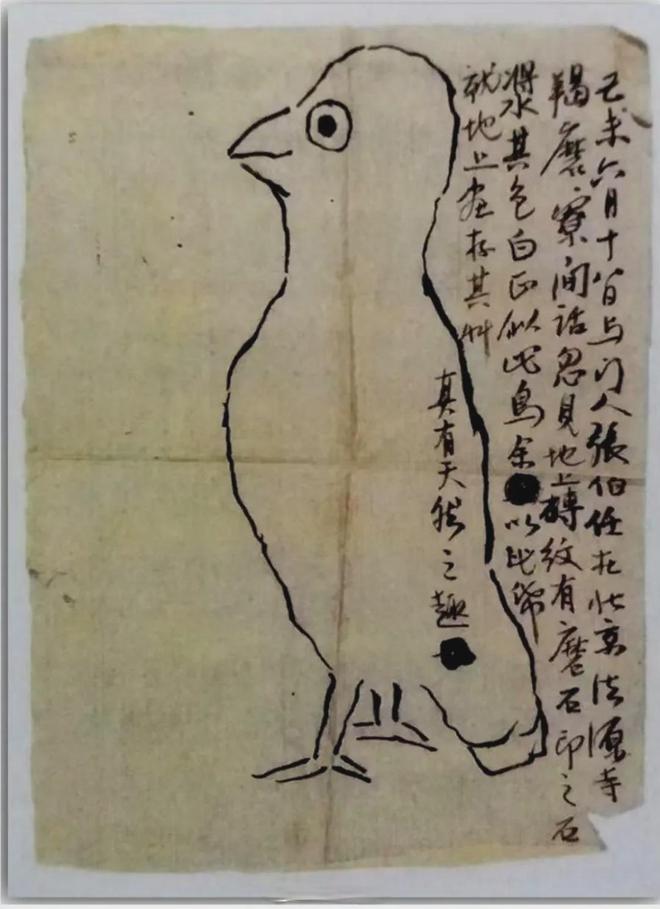 己未六月十八日与门人張伯任在北京法源寺
羯磨寮间話忽見地上磚紋有磨石印之石
漿水其色白正似此鳥余以此紙
就地上画存其艸
真有天然之趣